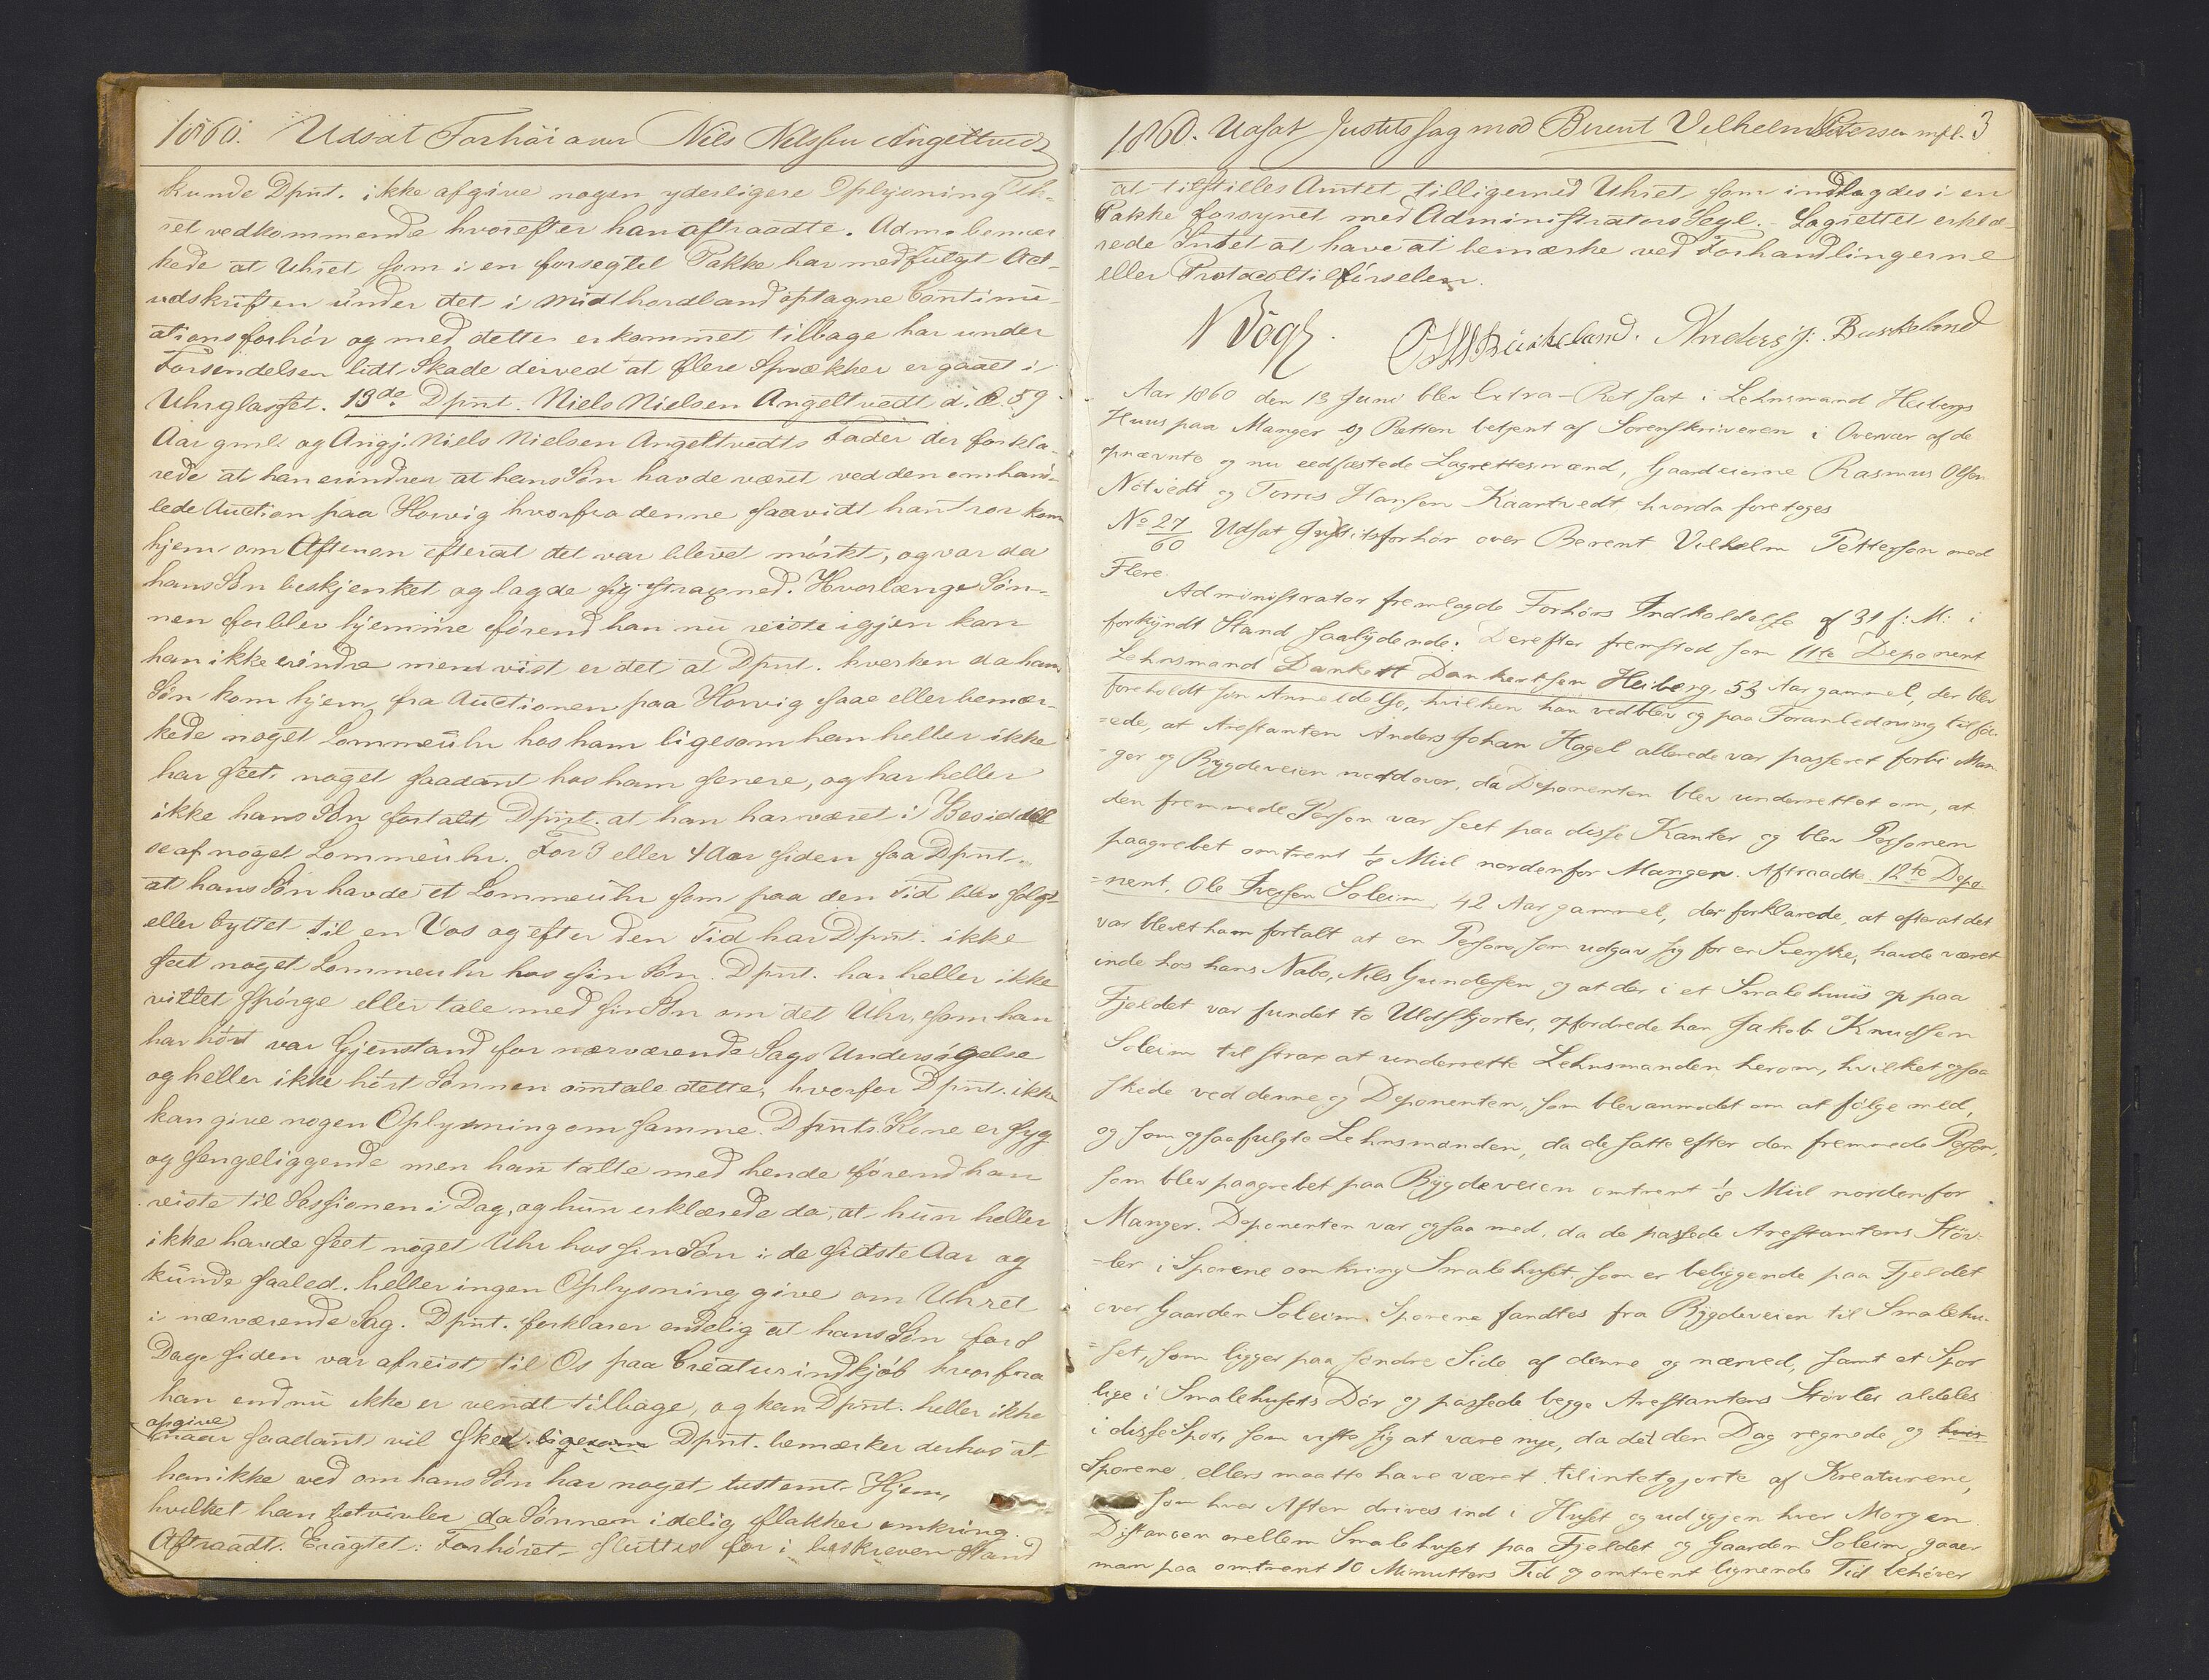 1860. Udsat Forhør over Nils Nilssen Angeltvedt
kunde Dpnt. ikke afgive nogen yderligere Oplysning Uh-
ret vedkommende hvorefter han aftraadte. Adm. bemær
kede at Uhret som i en forseglet Pakke har medfulgt Act-
udskriften under det i Midthordland optagne Continu-
ationsforhør og med dette er kommet tilbage har under
Forsendelsen lidt Skade derved at flere Sprækker er gaaet i
Uhrglasset. 13de Dpnt. Niels Nielsen Angeltvedt d. Æ. 59
Aar gml. og Angj. Niels Nielsen Angeltvedts Fader der forkla-
rede at han erindrer at hans Søn havde været ved den omhand-
lede Auction paa Howig hvorfra denne saavidt han tror kom
hjem om Aftenen efterat det var blevet mørkt, og var da
hans Søn beskjenket og lagde sig strax ned. Hvorlænge Søn-
nen forblev hjemme førend han nu reiste igjen kan
han ikke erindre mend vist er det at Dpnt. hverken da hans
Søn kom hjem fra Auctionen paa Howig saae eller bemær-
kede noget Lommeuhr hos ham ligesom han heller ikke
har seet noget saadant hos ham senere, og har heller
ikke hans Søn fortalt Dpnt. at han har været i Besiddel
se af noget Lommeuhr. For 3 eller 4 Aar siden saa Dpnt.
at hans Søn havde et Lommeuhr som paa den Tid blev solgt
eller byttet til en Vos og efter den Tid har Dpnt. ikke
seet noget Lommeuhr hos sin Søn. Dpnt. har heller ikke
villet spørge eller tale med sin Søn om det Uhr, som han
har hørt var Gjenstand for nærværende Sags Undersøgelse
og heller ikke hørt Sønnen omtale dette, hvorfor Dpnt. ikke
kan give nogen Oplysning om samme. Dpnts. Kone er syg
og sengeliggende men han talte med hende førend han
reiste til Sessionen i Dag, og hun erklærede da, at hun heller
ikke havde seet noget Uhr hos sin Søn i de sidste Aar og
kunde saaled. heller ingen Oplysning give om Uhret
i nærværende Sag. Dpnt. forklarer endelig at hans Søn for 8
Dage siden var afreist til Os paa Creaturindkjøb hvorfra
han endnu ikke er vendt tilbage, og kan Dpnt. heller ikke
opgive
naar saadant vil skee. ligesom Dpnt. bemærker derhos at
han ikke ved om hans Søn har noget bestemt Hjem,
hvilket han betvivler da Sønnen idelig flakker omkring.
Aftraadt. Eragtet: Forhøret sluttes for i beskreven Stand
1860. Udsat Justitssag mod Berent Vilhelm Petersen m fl. 3
at tilstilles Amtet tilligemed Uhret som indlagdes i en
Pakke forsynet med Administrators Segl. - Lagrettet erklæ-
rede Intet at have at bemærke ved Forhandlingerne
eller Protocoltilførselen.
N Vogt. Birkeland. Anders J: Birkeland
Aar 1860 den 13 Juni blev Extra-Ret sat i Lehnsmand Heibergs
Huus paa Manger og Retten betjent af Sorenskriveren i Overvær af de
opnævnte og nu eedfæstede Lagrettesmænd, Gaardeierne Rasmus Olsen
Notvedt og Torris Hansen Kaartvedt, hvorda foretoges
No 27/60 Udsat Justitsforhør over Berent Vilhelm Pettersen med
Flere.
Administrator fremlagde Forhørs Indkaldelse af 31 f: M: i
forkyndt Stand saalydende: Derefter fremstod som 11te Deponent
Lehnsmand Dankert Dankertsen Heiberg, 53 Aar gammel, der blev
foreholdt sin Anmeldelse, hvilken han vedblev og paa Foranledning tilføi-
=ede, at Arrestanten Anders Johan Hagel allerede var passeret forbi Man-
=ger og Bygdeveien nordover, da Deponenten blev underrettet om, at
den fremmede Person var seet paa disse Kanter og blev Personen
paagrebet omtrent 1/8 Miil nordenfor Manger. Aftraadte 12te Depo-
=nent, Ole Iversen Soleim, 42 Aar gammel, der forklarede, at efterat det
var blevet ham fortalt at en Person, som udgav sig for en Svenske, havde været
inde hos hans Nabo, Nils Gundersen, og at der i et Smalehuus op paa
Fjeldet var fundet to Uldskjorter, opfordrede han Jakob Knudsen
Soleim til strax at underrette Lehnsmanden herom, hvilket ogsaa
skede ved denne og Deponenten, som blev anmodet om at følge med,
og som ogsaa fulgte Lehnsmanden, da de satte efter den fremmede Person,
som blev paagrebet paa Bygdeveien omtrent 1/8 Miil nordenfor
Manger. Deponenten var ogsaa med, da de passede Arrestantens Støv-
=ler i Sporene omkring Smalehuset, som er beliggende paa Fjeldet
over Gaarden Soleim. Sporene fandtes fra Bygdeveien til Smalehu-
=set, som ligger paa søndre Side af denne og nærved, samt et Spor
lige i Smalehusets Dør og passede begge Arrestantens Støvler aldeles
i disse Spor, som viste sig at være nye, da det den Dag regnede og hvis
Sporene ellers maatte have været tilintetgjorte af Kreaturene,
som hver Aften drives ind i Huset og ud igjen hver Morgen.
Distancen mellem Smalehuset paa Fjeldet og Gaarden Soleim gaaer
man paa omtrent 10 Minutters Tid og omtrent lignende Tid behøver